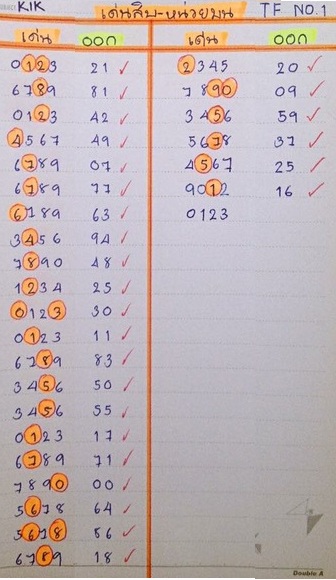 KIK เด่นสิบ-หน่วยบน TF NO.1
เด่น ออก
0123 21 ✓
6789 81 ✓
0123 42 ✓
4567 49 ✓
6789 07 ✓
6789 77 ✓
6789 63 ✓
3456 94 ✓
7890 48 ✓
1234 25 ✓
0123 30 ✓
0123 11 ✓
6789 83 ✓
3456 50 ✓
3456 55 ✓
0123 17 ✓
6789 71 ✓
7890 00 ✓
5678 64 ✓
5678 56 ✓
6789 18 ✓
เด่น ออก
2345 20 ✓
7890 09 ✓
3456 59 ✓
5678 37 ✓
4567 25 ✓
9012 16 ✓
0123
Double A